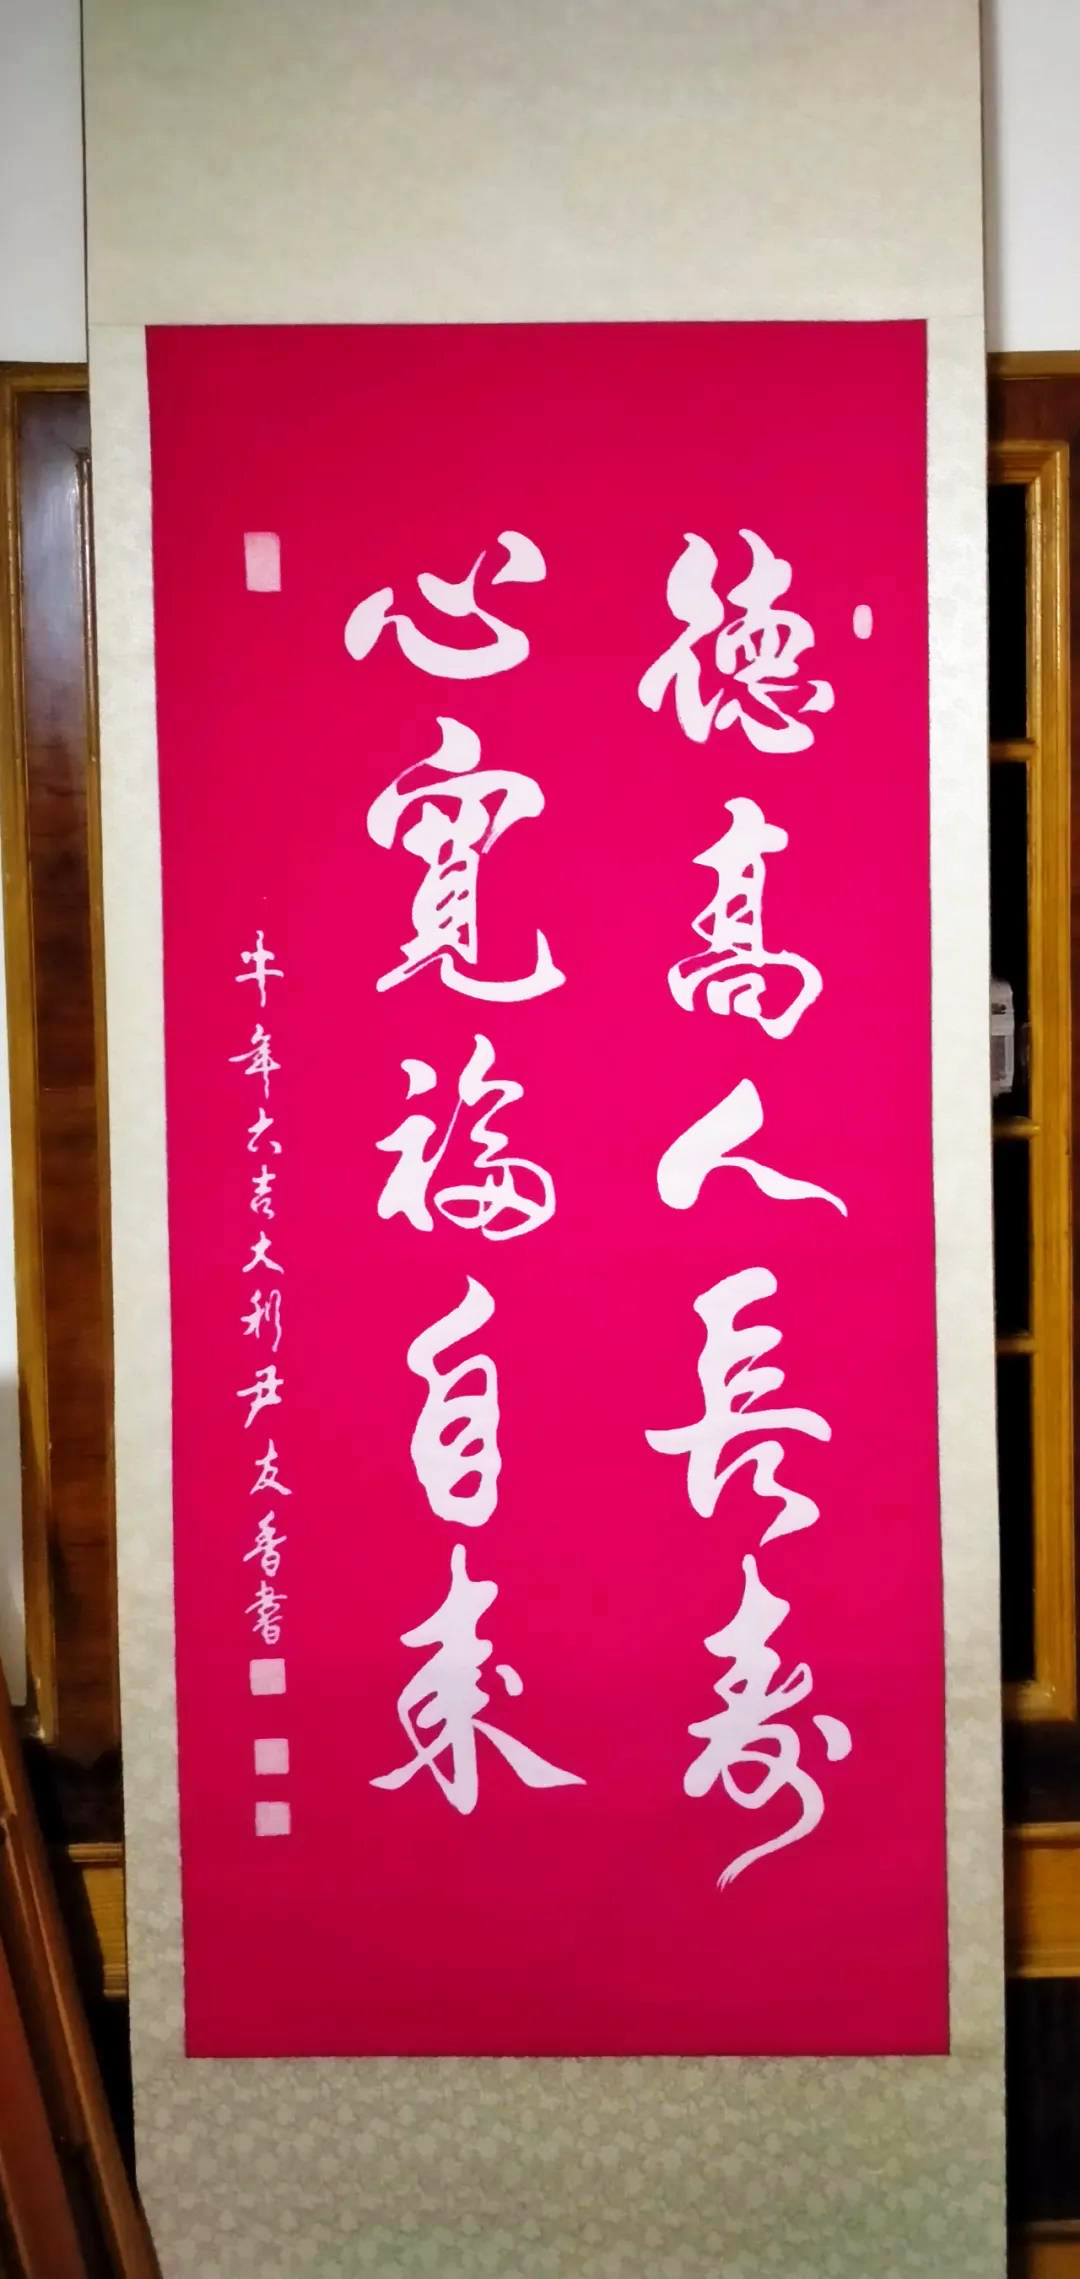 德高人長壽
心寬福自来
牛年大吉大利尹友香書